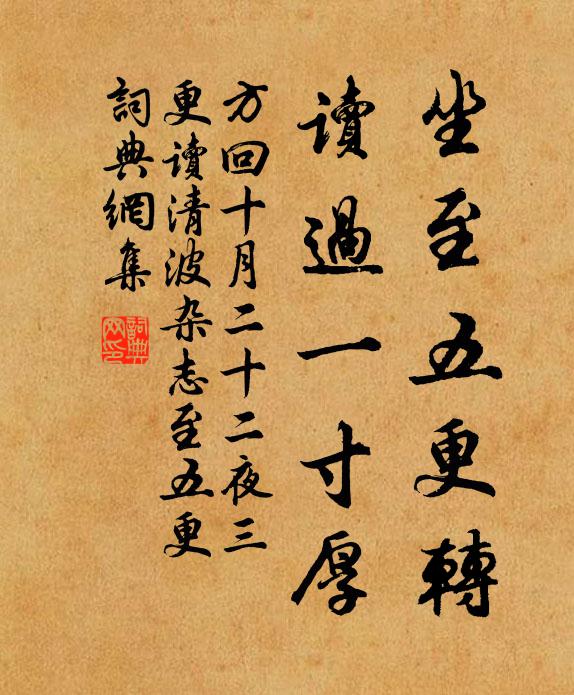 坐至五更轉
讀過一寸厚
方回十月二十二夜三
更讀清波杂志至五更
詞典網集
詞典网印